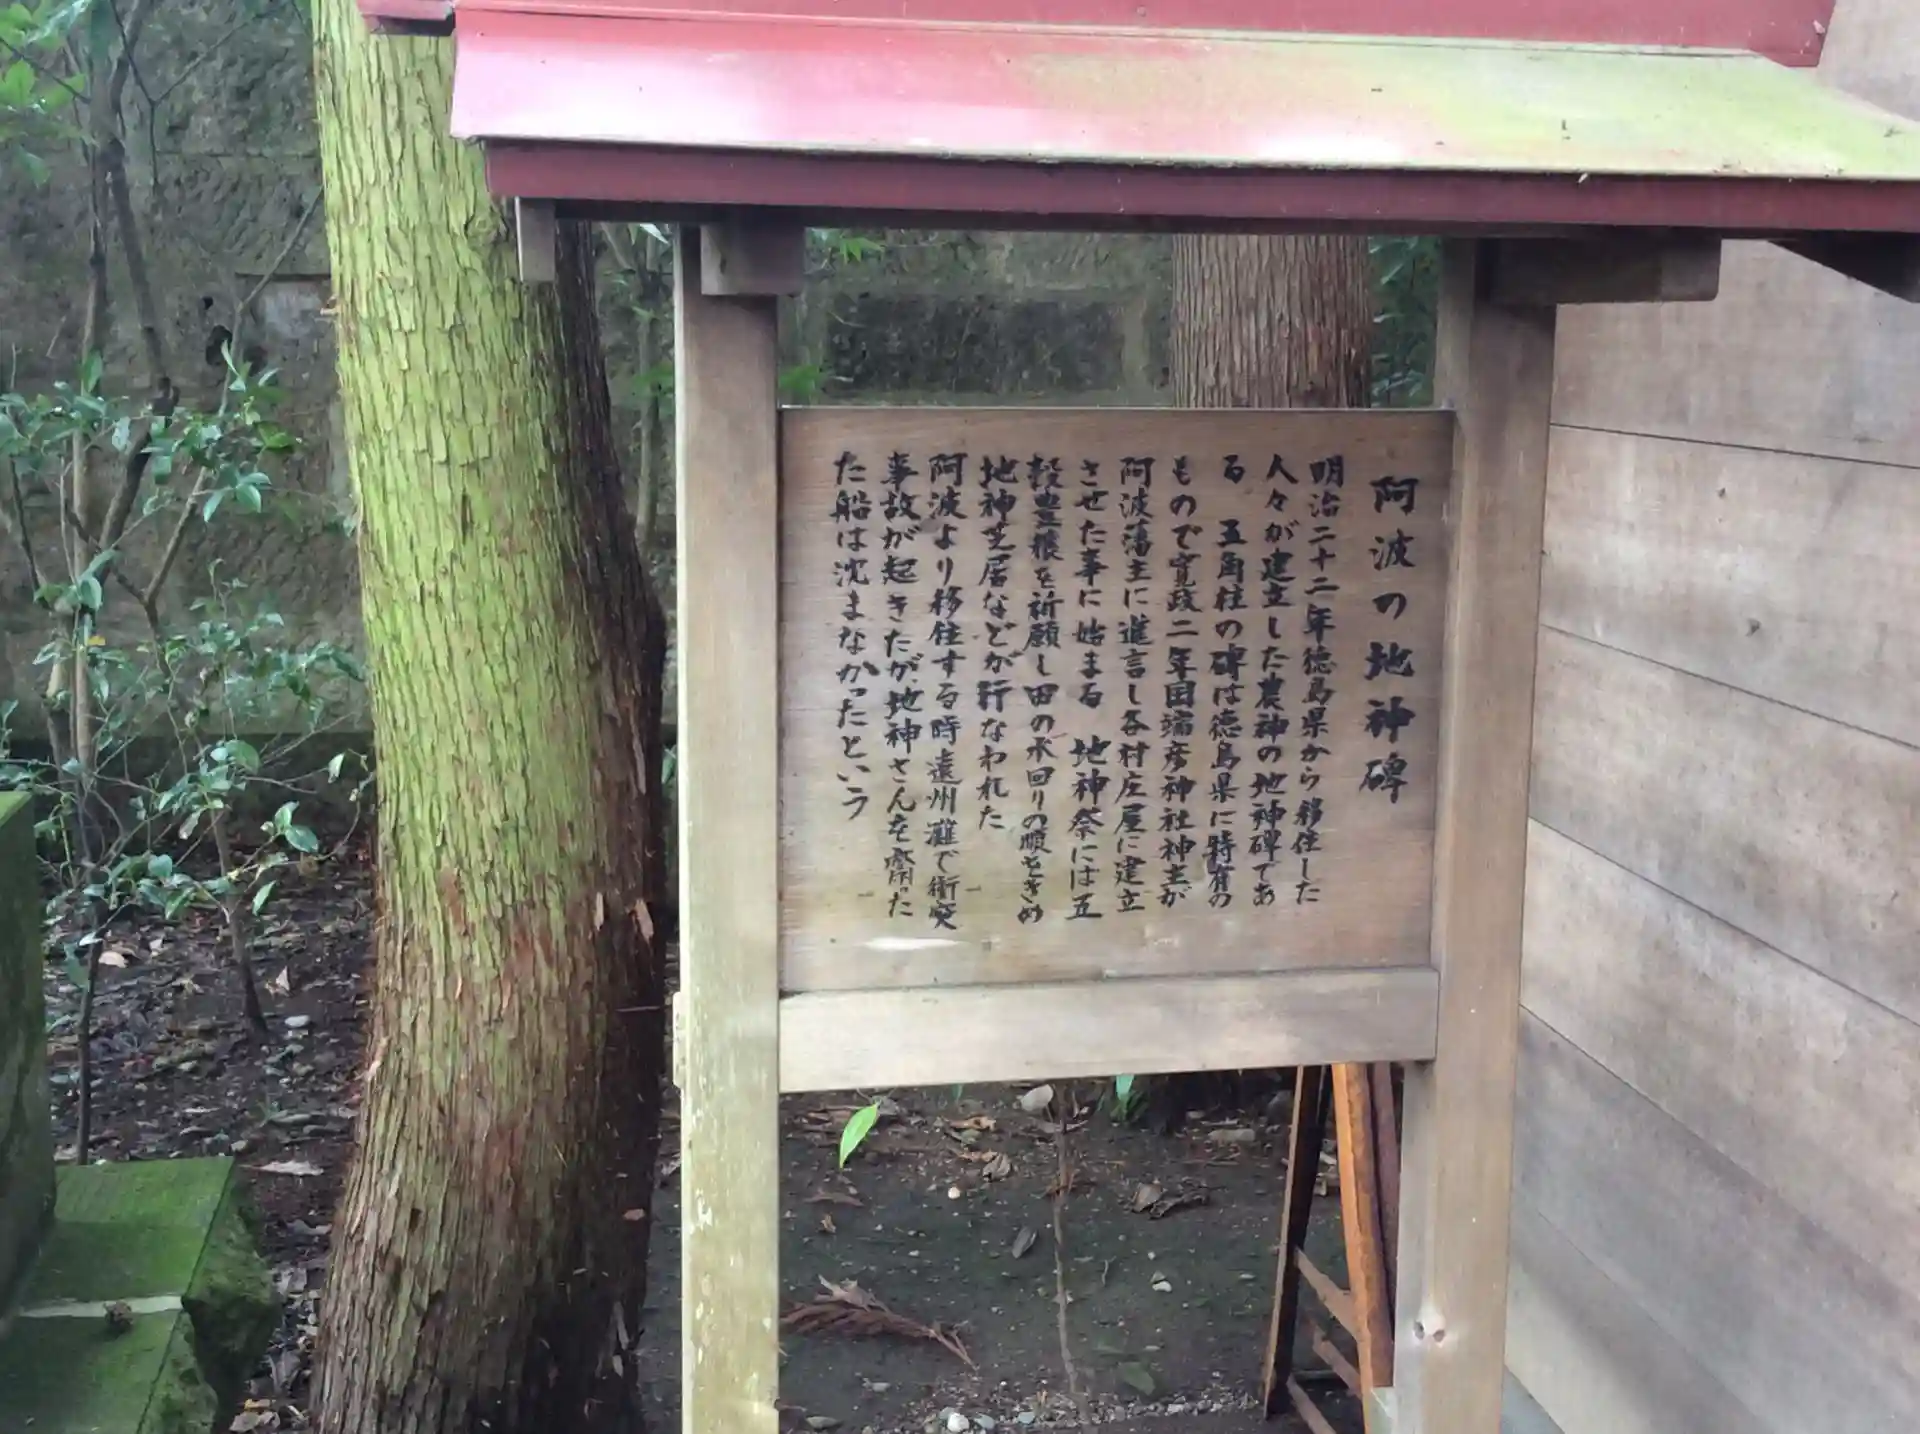 阿波の地神碑
明治二十二年徳島県から移住した
人々が建立した農神の地神碑であ
る　五角柱の碑は徳島県に特有の
もので寛政二年国瑞彦神社神主が
阿波藩主に進言し各村庄屋に建立
させた事に始まる　地神祭には五
穀豊穣を祈願し田の水回りの順をきめ
地神芝居などが行なわれた
阿波より移住する時遠州灘で衝突
事故が起きたが、地神さんを齋った
た船は沈まなかったという